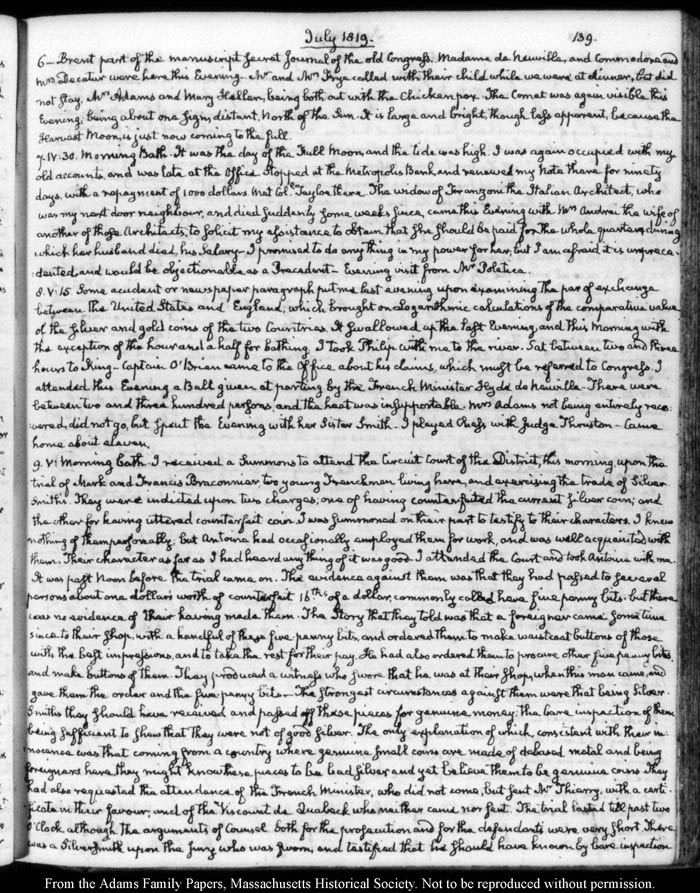 July 1819.
139.
6 — Brent part of the manuscript secret Journal of the old Congress. Madame de Neuville, and Commodore and
Mrs Decatur were here this Evening — Mr and Mrs Frye called with their child while we were at dinner, but did
not stay. Mrs Adams and Mary Hellen, being both out with the Chicken pox. The Comet was again visible this
Evening, being about one Sign, distant, North of the Sun. It is large and bright, though less apparent, because the
Harvest Moon, is just now coming to the full.
7. IV:30. Morning Bath. It was the day of the Full Moon, and the tide was high. I was again occupied with my
old accounts, and was late at the Office. Stopped at the Metropolis Bank and renewed my Note there for ninety
days, with a repayment of 1000 dollars. Met Coll. Tayloe there. The widow of Franzoni the Italian Architect, who
was my next door neighbour, and died suddenly some weeks since, came this Evening with Mrs Andrei the wife of
another of those Architects, to solicit my assistance to obtain that she should be paid for the whole quarter, during
which her husband died, his Salary. I promised to do any thing in my power for her, but I am afraid it is unprece-
dented and would be objectionable as a Precedent — Evening visit from Mr Poletica.
8. V:15 Some accident or newspaper paragraph put me last evening upon examining the par of exchange
between the United States and England, which brought on Logarithmic calculations of the comparative value
of the silver and gold coins of the two Countries. It swallowed up the last Evening, and this Morning with
the exception of the hour and a half for bathing. I took Philip with me to the river. Sat between two and three
hours to King — Captain O'Brian came to the Office about his claims, which must be referred to Congress. I
attended this Evening a Ball given at parting by the French Minister Hyde de Neuville — There were
between two and three hundred persons, and the heat was insupportable. Mrs Adams not being entirely reco-
vered, did not go, but spent the Evening with her Sister Smith. I played Chess with Judge Thruston — Came
home about eleven.
9. V: Morning bath. I received a Summons to attend the Circuit Court of the District, this morning, upon the
trial of Mark and Francis Braconnier two young Frenchmen living here, and exercising the trade of Silver
Smiths. They were indicted upon two charges; one of having counterfeited the current silver coin; and
the other for having uttered counterfeit coin. I was summoned on their part to testify to their characters. I knew
nothing of them personally; but Antoine had occasionally employed them for work, and was well acquainted with
them. Their character as far as I had heard any thing of it was good. I attended the Court and took Antoine with me.
It was past Noon before the trial came on. The evidence against them was that they had passed to several
persons about one dollar's worth of counterfeit 16ths of a dollar, commonly called here five penny bits. but there
was no evidence of their having made them. The Story that they told was that a foreigner came sometime
since to their Shop, with a handful of these five penny bits, and ordered them to make waistcoat buttons of those
with the best impressions, and to take the rest for their pay. He had also ordered them to procure other five penny bits,
and make buttons of them. They produced a witness who swore that he was at their Shop, when this man came, and
gave them the order and the five penny bits — The strongest circumstances against them were that being Silver-
Smiths they should have received and passed off these pieces for genuine money; the bare inspection of them
being sufficient to shew that they were not of good silver. The only explanation of which consistent with their in-
nocence was that coming from a country where genuine small coins are made of debased metal and being
foreigners here they might know these pieces to be bad silver and yet believe them to be genuine coins. They
had also requested the attendance of the French Minister, who did not come, but sent Mr Thierry, with a certi-
ficate in their favour; and of the Viscount de Quabeck who neither came nor sent. The trial lasted till past two
O'Clock, although the arguments of Counsel both for the prosecution and for the defendants were very short. There
was a Silver Smith upon the Jury who was sworn, and testified that he should have known by bare inspection
From the Adams Family Papers, Massachusetts Historical Society. Not to be reproduced without permission.